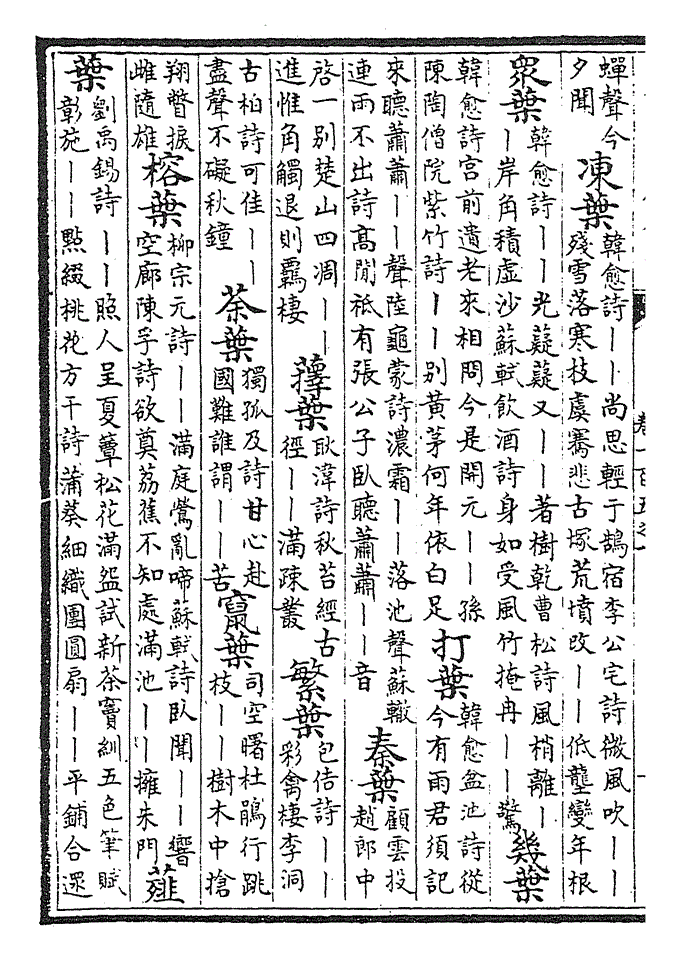 蟬聲今
夕聞
凍葉
韓愈詩——尚思輕于鵲宿李公宅詩微風吹——
殘雪落寒枝虞騫悲古塚荒墳改——低壟變年根
衆葉
韓愈詩——光薿薿又——著樹乾曹松詩風梢離—
—岸角積虛沙蘇軾飲酒詩身如受風竹掩冉——驚
幾葉
韓愈詩宮前遺老來相問今是開元——孫
陳陶僧院紫竹詩——別黃茅何年依白足
打葉
韓愈盆池詩從
今有雨君須記
來聽蕭蕭——聲陸龜蒙詩濃霜——落池聲蘇轍
連雨不出詩高閒秪有張公子臥聽蕭蕭——音
秦葉
顧雲投
趙郎中
啓一別楚山四凋——
進惟角觸退則羈棲
蘀葉
耿湋詩秋苔經古
徑——滿疎叢
繁葉
包佶詩——
彩禽棲李洞
古柏詩可佳——
盡聲不礙秋鐘
荼葉
獨孤及詩甘心赴
國難誰謂——苦
窠葉
司空曙杜鵑行跳
枝——樹木中搶
翔瞥捩
雌隨雄
榕葉
柳宗元詩——滿庭鶯亂啼蘇軾詩臥聞——響
空廊陳孚詩欲奠荔蕉不知處滿池——擁朱門
薤
葉
劉禹錫詩——照人呈夏簟松花滿盌試新茶竇紃五色筆賦
彰施——點綴桃花方干詩蒲葵細織團圓扇——平鋪合還